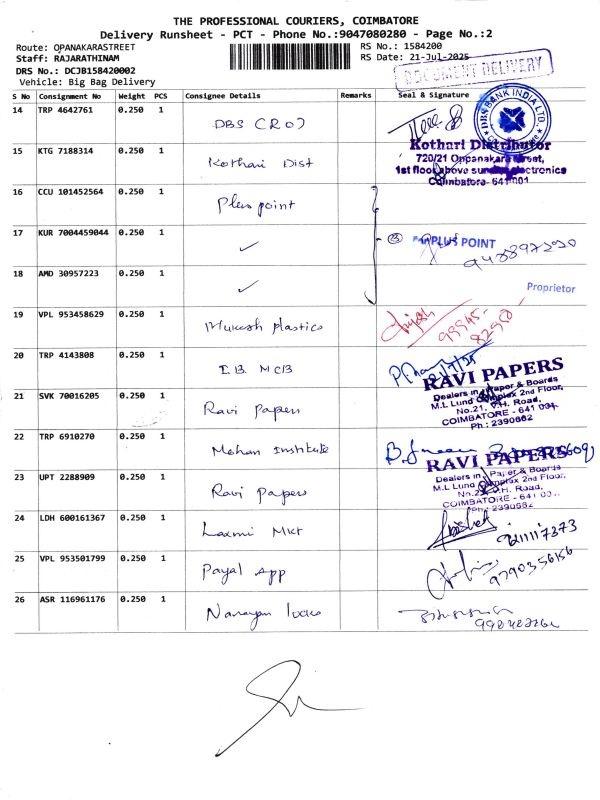 THE PROFESSIONAL COURIERS, COIMBATORE
Delivery Runsheet - PCT - Phone No.:9047080280 - Page No.:2
Route: OPANAKARASTREET
RS No.: 1584200
Staff: RAJARATHINAM
RS Date: 21-Jul-2025
DRS No.: DCJB158420002
Vehicle: Big Bag Delivery
DOCUMENT DELIVERY
S No Consignment No Weight PCS Consignee Details Remarks Seal & Signature
14 TRP 4642761 0.250 1 DBS (RO)
DBS BANK INDIA LTD.
15 KTG 7188314 0.250 1 Kothari Dist
Kothari Distributor
720/21 Oppanakara Street,
1st floor, above sundar electronics
Coimbatore- 641 001
16 CCU 101452564 0.250 1 Plus point
17 KUR 7004459044 0.250 1 ✓
③ For PLUS POINT
18 AMD 30957223 0.250 1 ✓
Proprietor
19 VPL 953458629 0.250 1 Mukesh plastics
20 TRP 4143808 0.250 1 I.B. MCB
21 SVK 70016205 0.250 1 Ravi Papers
RAVI PAPERS
Dealers in Paper & Boards
M.L Lund Complex 2nd Floor,
No.21, V.H. Road,
COIMBATORE - 641 001.
Ph : 2390662
22 TRP 6910270 0.250 1 Mohan Institute
23 UPT 2288909 0.250 1 Ravi Papers
RAVI PAPERS
Dealers in Paper & Boards
M.L Lund Complex 2nd Floor,
V.H. Road,
COIMBATORE - 641
Ph : 2390662
24 LDH 600161367 0.250 1 Laxmi Mkt
25 VPL 953501799 0.250 1 Payal App
9790356156
26 ASR 116961176 0.250 1 Narayan